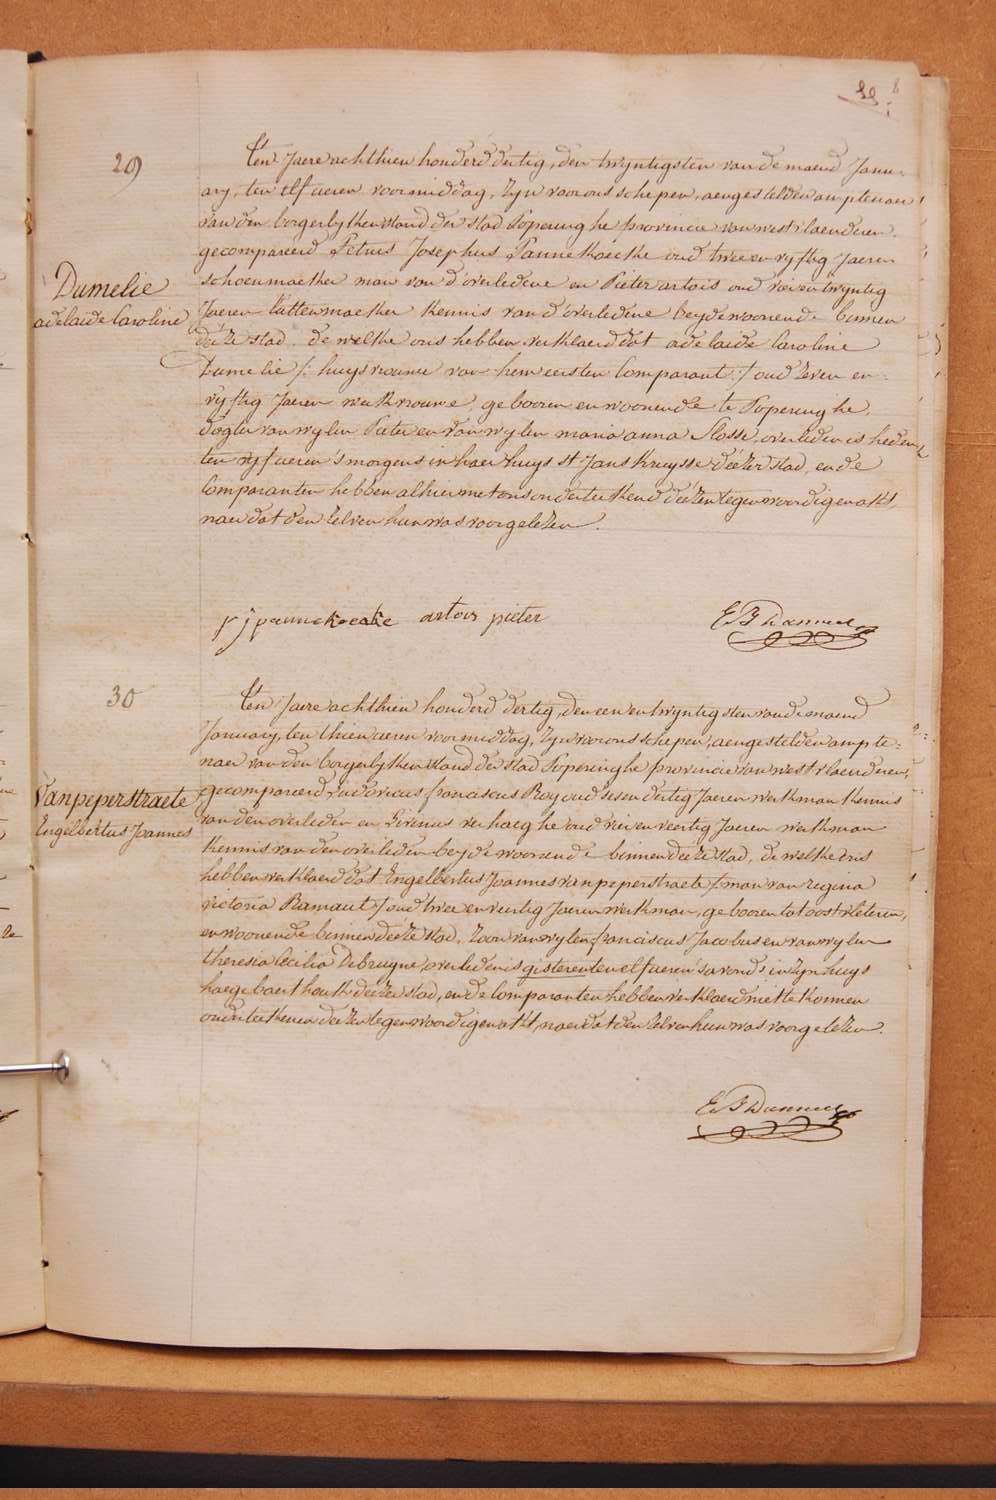 29
Ten Jaere achthien honderd dertig, den twyntigsten van de maend Janu-
ary, ten elf ueren voormiddag, zyn voor ons schepen, aengestelden amptenaer
van den borgerlyken stand der stad Poperinghe provincie van westvlaenderen.
gecompareerd Petrus Josephus Pannekoecke oud twee en vyftig Jaeren
schoenmaeker man van d'overledene en Pieter artois oud en twyntig
Dumelie
adelaide Caroline
Jaeren lattenmaeker kennis van d'overledene beyde woonende binnen
deéze stad. de welke ons hebben verklaerd dat adelaide Caroline
Dumelie /: huysvrouwe van hem eersten Comparant :/ oud zeven en
vyftig Jaeren werkvrouwe, gebooren en woonende te Poperinghe,
dogter van wylen Pieter en van wylen maria anna Slosse, overleden is heden
ten vyf ueren 's morgens in haer huys st Jans Kruysse deézer stad, en de
Comparanten hebben alhier met ons onderteekend deézen tegenwoordigen akt,
naer dat den zelven hun was voorgelezen.
p j pannekoecke artois pieter
30
Ten Jaere achthien honderd dertig, den een en twyntigsten van de maend
January, ten thien ueren voormiddag, zyn voor ons schepen, aengestelden ampte-
naer van den borgerlyken stand der stad Poperinghe provincie van westvlaenderen,
Vanpeperstraete
Engelbertus Joannes
gecompareerd Ludovicus franciscus Roy oud sesendertig Jaeren werkman kennis
van den overleden en Livinus verhaeghe oud vier en veertig Jaeren werkman
kennis van den overleden beyde woonende binnen deéze stad, de welke ons
hebben verklaerd dat Engelbertus Joannes vanpeperstraete /: man van regina
victoria Ramaut :/ oud twee en veertig Jaeren werkman, gebooren tot oostvleteren,
en woonende binnen deéze stad, zoon van wylen franciscus Jacobus en van wylen
theresia Cecilia Debruyne overleden is gisteren ten elf ueren 's avonds, in zyn huys
haegebaert houk deézer stad, en de Comparanten hebben verklaerd niet te konnen
onderteekenen deézen tegenwoordigen akt, naer dat den zelven hun was voorgelezen.